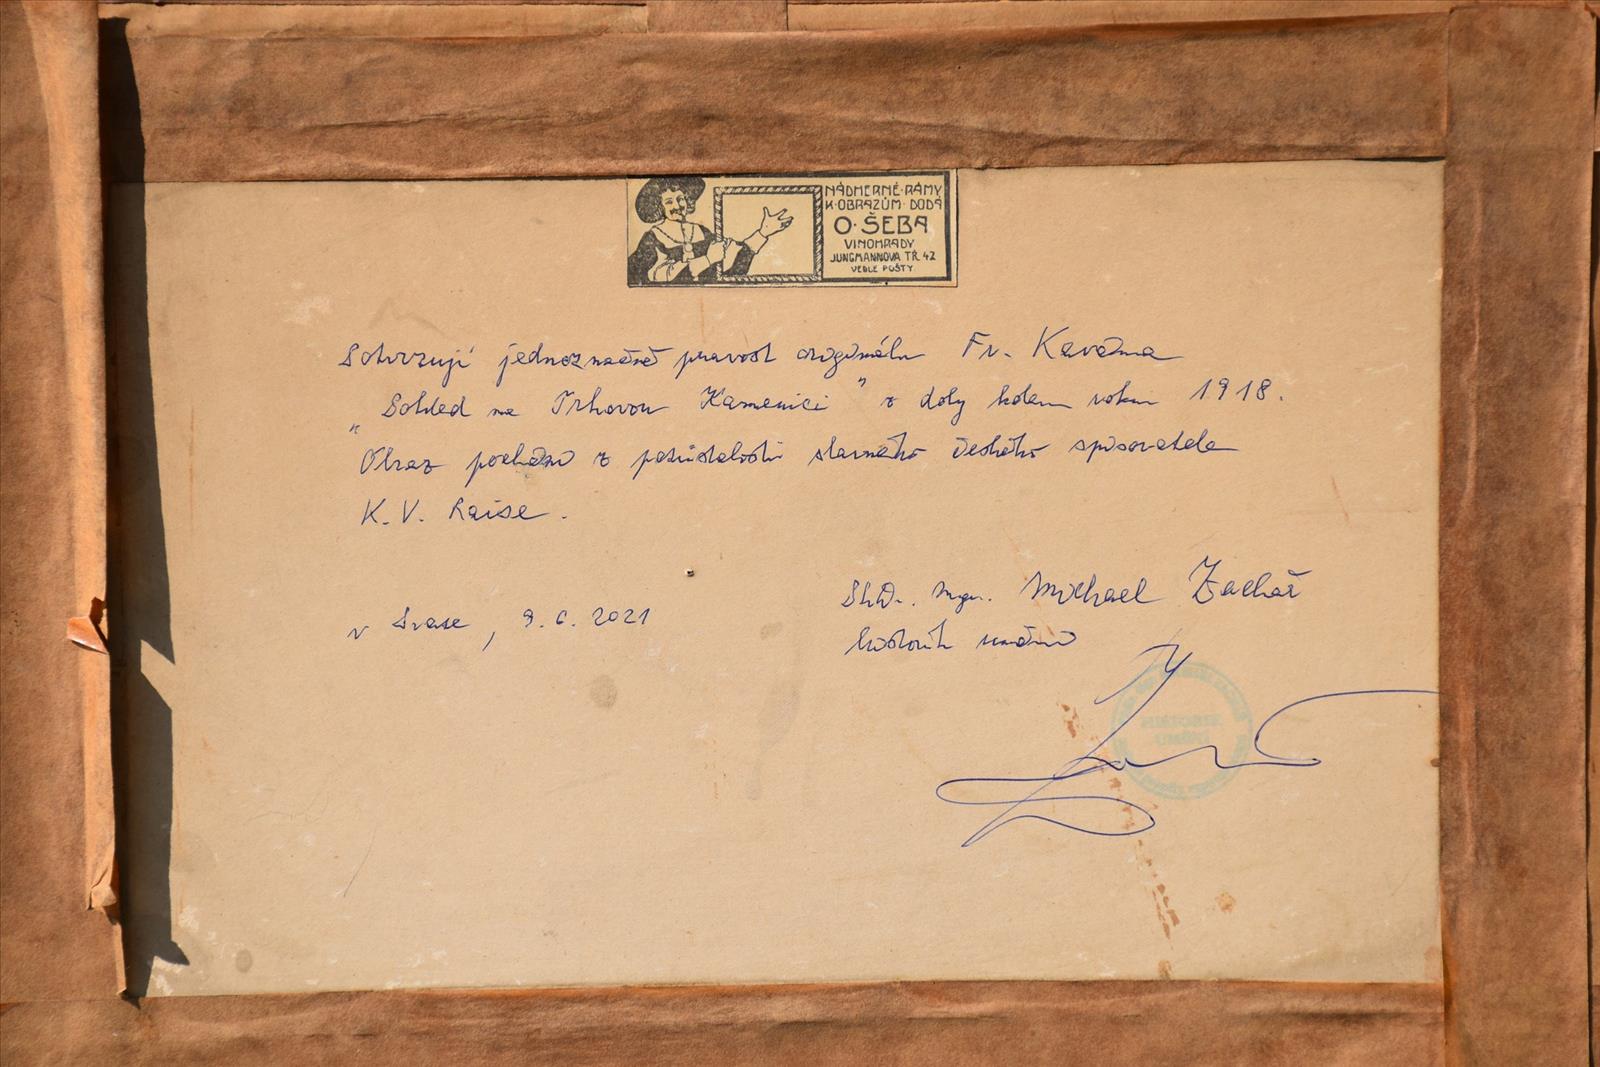 NÁDHERNÉ·RÁMY
K·OBRAZŮM·DODÁ
O·ŠEBA
VINOHRADY
JUNGMANNOVA TŘ. 42
VEDLE POŠTY
Potvrzuji jednoznačně pravost originálu Fr. Kavána
„Pohled na Trhovou Kamenici" z doby kolem roku 1918.
Obraz pochází z pozůstalosti slavného českého spisovatele
K. V. Raise.
PhDr. Mgr. Michael Zachař
v Praze, 9. 6. 2021
historik umění
HISTORIK
UMĚNÍ